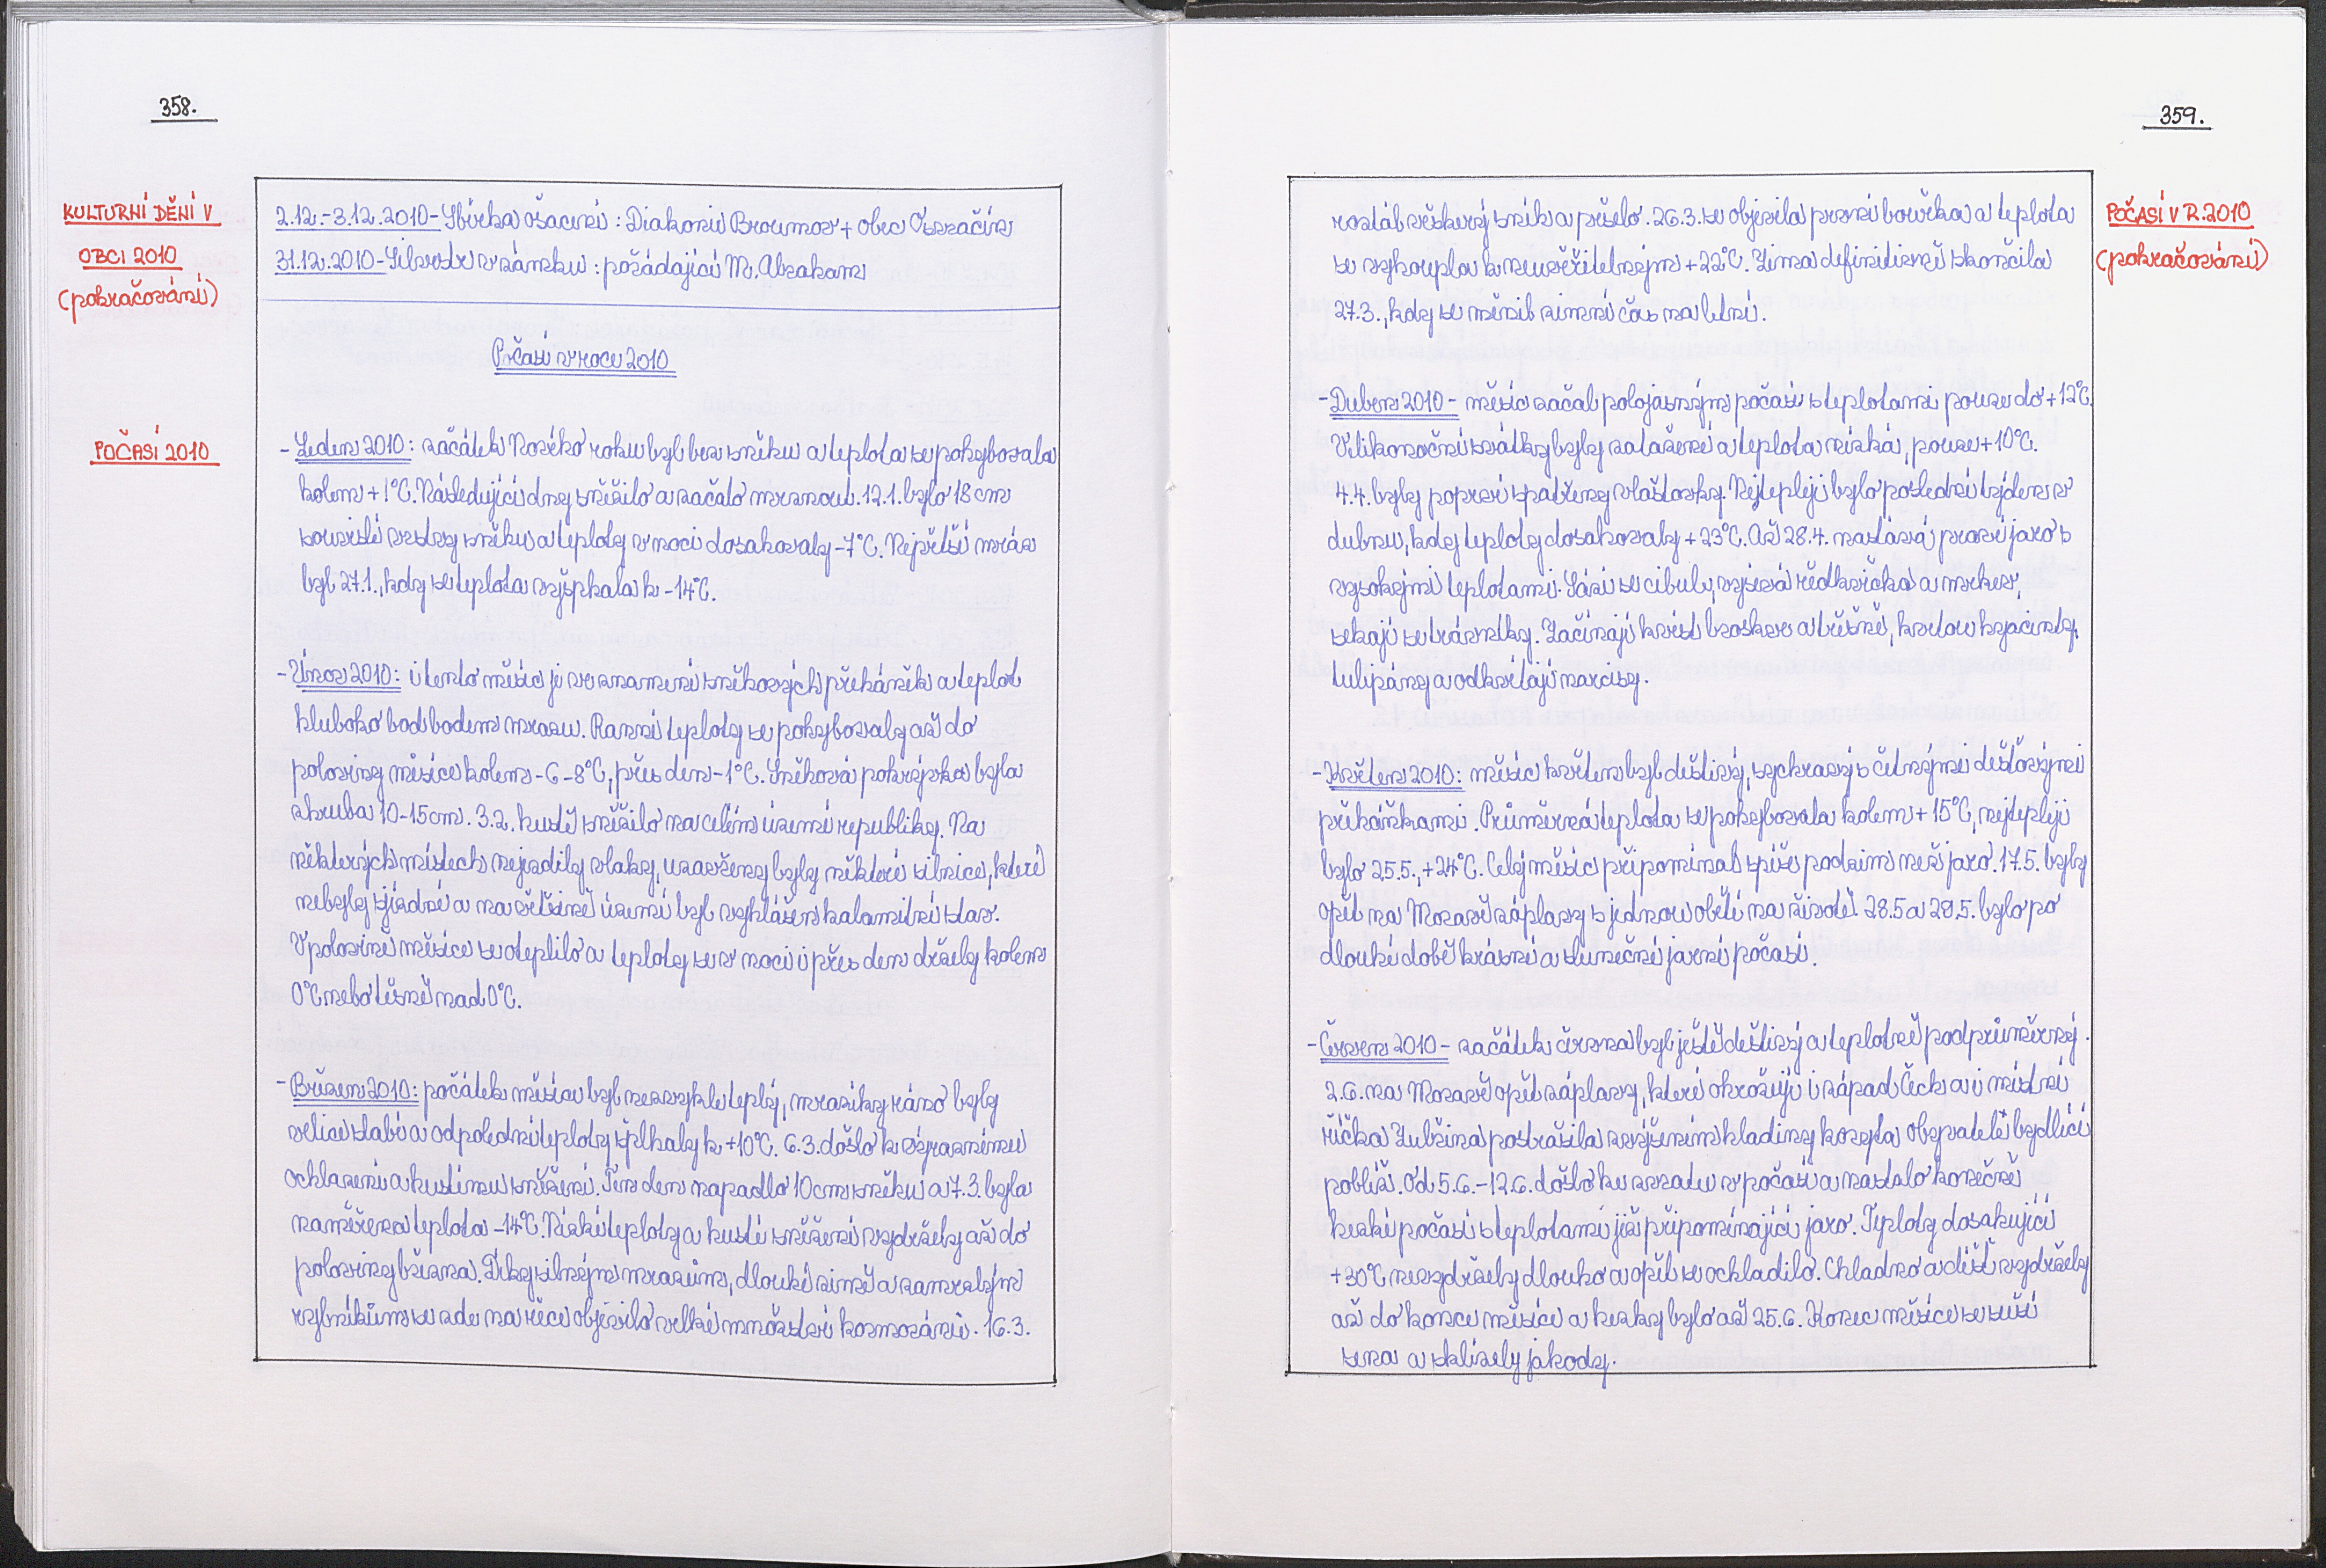 358.
KULTURNÍ DĚNÍ V
OBCI 2010
(pokračování)
2.12.-3.12.2010- Sbírka ošacení: Diakonie Broumov + obec Osvračín
31.12.2010- Silvestr v zámku: pořádající M. Abraham
Počasí v roce 2010
POČASÍ 2010
- Leden 2010: začátek Nového roku byl bez sněhu a teplota se pohybovala
kolem +1°C. Následující dny sněžilo a začalo mrznout. 12.1. bylo 18 cm
souvislé vrstvy sněhu a teploty v noci dosahovaly -7°C. Největší mráz
byl 27.1., kdy se teplota vyšphala k -14°C.
- Únor 2010: i tento měsíc je ve znamení sněhových přeháněk a teplot
hluboko bod bodem mrazu. Ranní teploty se pohybovaly až do
poloviny měsíce kolem -6 -8°C, přes den -1°C. Sněhová pokrývka byla
zhruba 10-15cm. 3.2. hustě sněžilo na celém území republiky. Na
některých místech nejezdily vlaky, uzavřeny byly některé silnice, které
nebyly sjízdné a na většině území byl vyhlášen kalamitní stav.
V polovině měsíce se oteplilo a teploty se v noci i přes den držely kolem
0°C nebo těsně nad 0°C.
- Březen 2010: počátek měsíce byl nezvykle teplý, mrazíky ráno byly
velice slabé a odpolední teploty šplhaly k +10°C. 6.3. došlo k výraznému
ochlazení a hustému sněžení. Ten den napadlo 10cm sněhu a 7.3. byla
naměřena teplota -14°C. Nízké teploty a husté sněžení vydržely až do
poloviny března. Díky silným mrazům, dlouhé zimě a zamrzlým
rybníkům se zde na řece objevilo velké množství kormoránů. 16.3.
359.
POČASÍ V R. 2010
(pokračování)
roztál veškerý sníh a pršelo. 26.3. se objevila první bouřka a teplota
se vyhoupla k neuvěřitelným +22°C. Zima definitivně skončila
27.3., kdy se měnil zimní čas na letní.
- Duben 2010 - měsíc začal polojasným počasí s teplotami pouze do +12°C.
Velikonoční svátky byly zatažené a teplota nízká, pouze +10°C.
4.4. byly poprvé spatřeny vlaštovky. Nejtepleji bylo poslední týden v
dubnu, kdy teploty dosahovaly +23°C. Až 28.4. nastává pravé jaro s
vysokými teplotami. Sází se cibule, vysévá ředkvička a mrkev,
sekají se trávníky. Začínají kvést broskve a třešně, kvetou hyacinty,
tulipány a odkvétají narcisy.
- Květen 2010: měsíc květen byl deštivý, sychravý s četnými dešťovými
přeháňkami. Průměrná teplota se pohybovala kolem +15°C, nejtepleji
bylo 25.5., +24°C. Celý měsíc připomínal spíše podzim než jaro. 17.5. byly
opět na Moravě záplavy s jednou obětí na životě. 28.5 a 29.5. bylo po
dlouhé době krásné a slunečné jarní počasí.
- Červen 2010 - začátek června byl ještě deštivý a teplotně podprůměrný.
2.6. na Moravě opět záplavy, které ohrožují i západ Čech a i místní
říčka Zubřina postrašila zvýšením hladiny koryta obyvatele bydlící
poblíž. Od 5.6.-12.6. došlo ke zvratu v počasí a nastalo konečně
hezké počasí s teplotami již připomínající jaro. Teploty dosahující
+30°C nevydržely dlouho a opět se ochladilo. Chladno a déšť vydržely
až do konce měsíce a hezky bylo až 25.6. Konec měsíce se suší
sena a sklízely jahody.